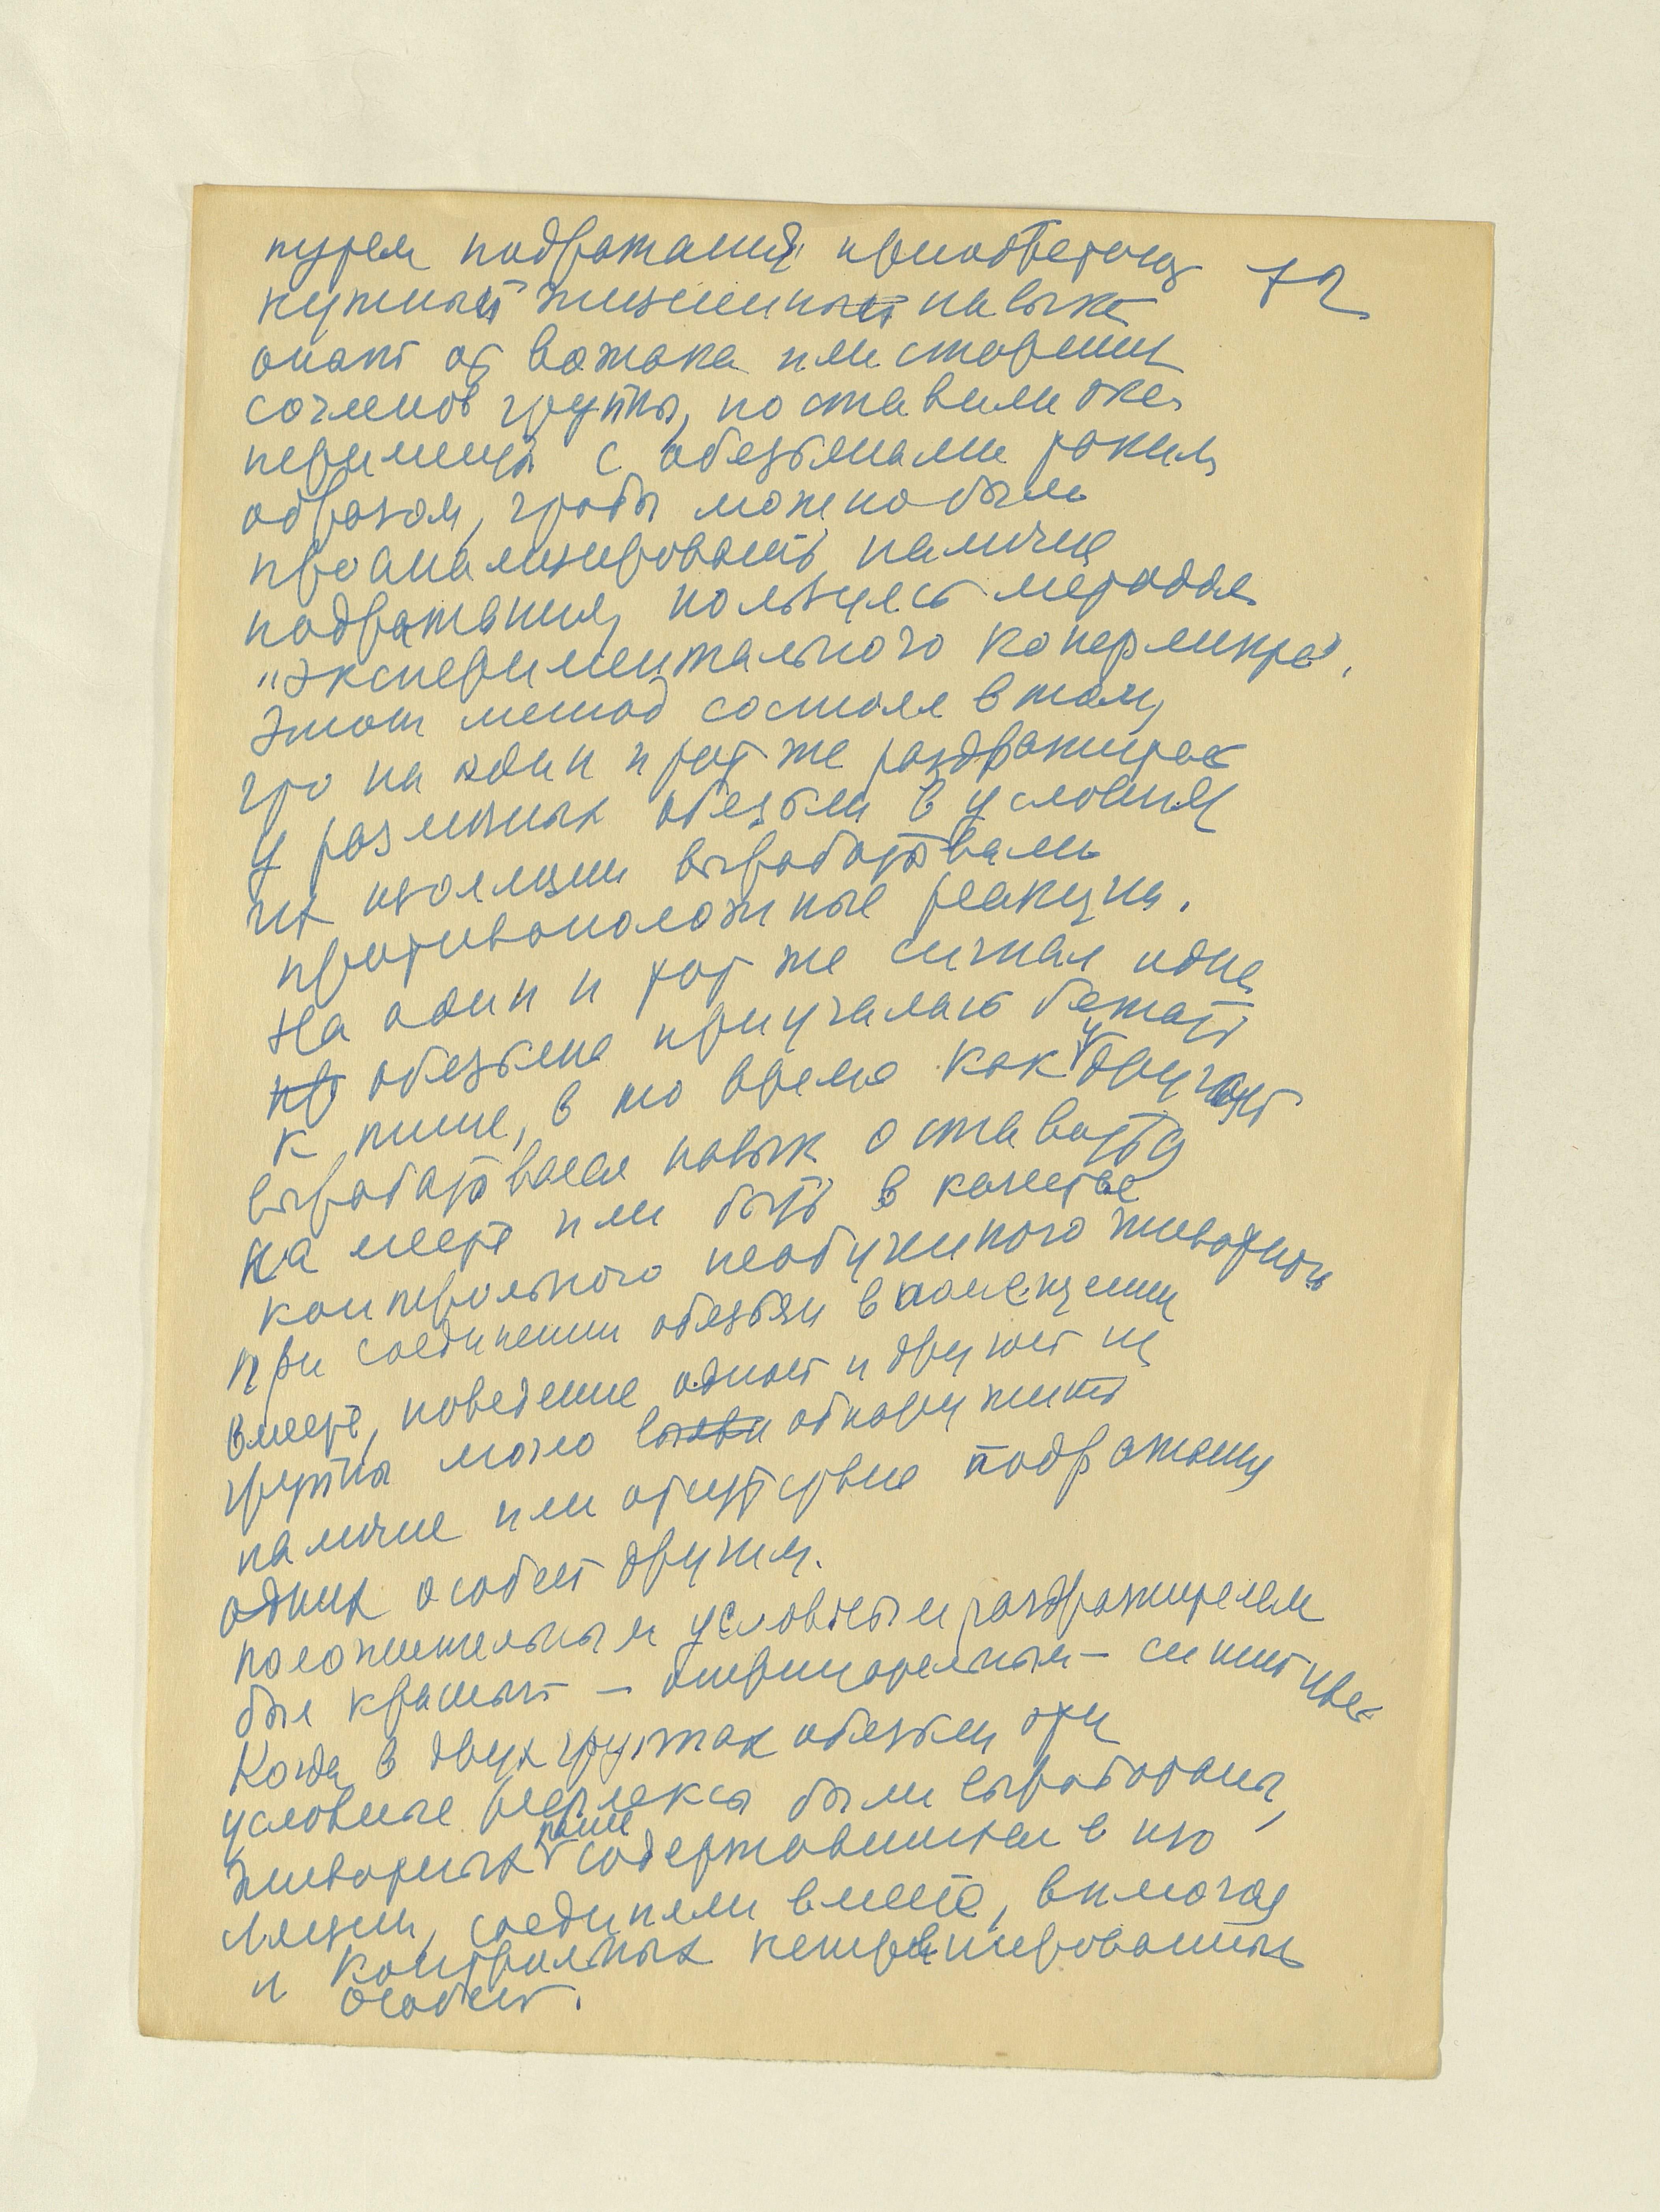 путем подражания приобретают 72
нужный жизненный навык
опыт от вожака или старших
сочленов группы, поставили экс
перименты с обезьянами таким
образом, чтобы можно было
проанализировать наличие
подражания, пользуясь методом
"экспериментального конфликта".
Этот метод состоял в том,
что на один и тот же раздражитель
у различных обезьян в условиях
их изоляции вырабатывали
противоположные реакции.
На один и тот же сигнал одна
обезьяна приучалась бежать
к пище, в то время как у другой
вырабатывался навык оставаться
на месте или быть в качестве
контрольного необученного животного
При соединении обезьян в помещении
вместе, поведение одной и другой из
группы могло выяви обнаружить
наличие или отсутствие подражания
одних особей другим.
Положительным условным раздражителем
был красный – отрицательным – синий цвет
Когда в двух группах обезьян эти
условные рефлексы были выработаны,
животных ранее содержавшихся в изо
ляции, соединяли вместе, включая
и контрольных нетренированных
особей.